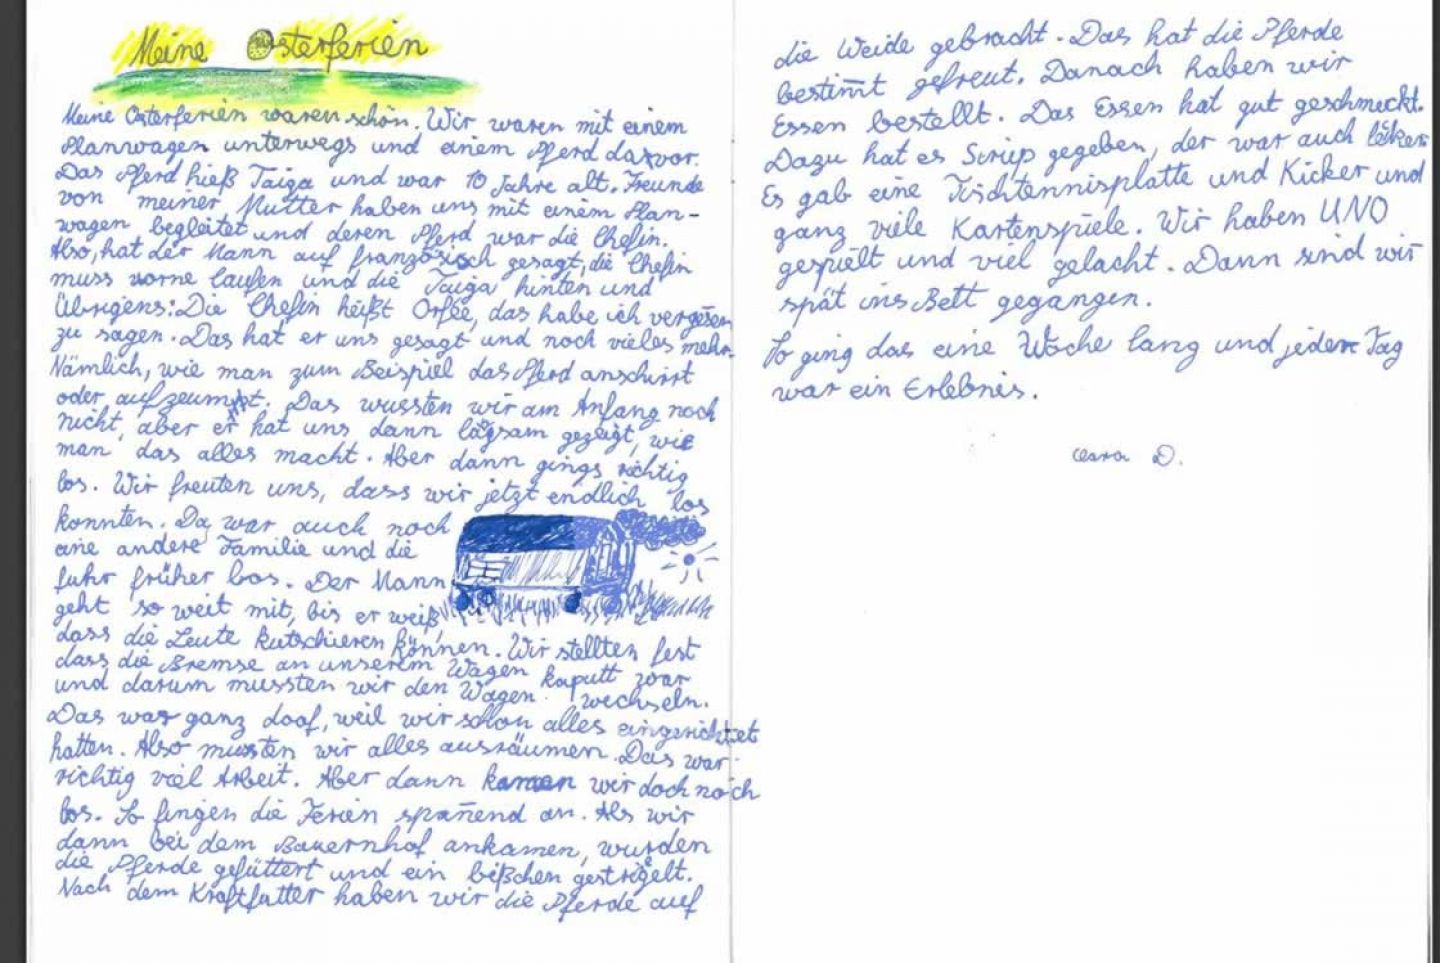 Meine Osterferien
Meine Osterferien waren schön. Wir waren mit einem
Planwagen unterwegs und einem Pferd davor.
Das Pferd hieß Taiga und war 10 Jahre alt. Freunde
von meiner Mutter haben uns mit einem Plan-
wagen begleitet und deren Pferd war die Chefin.
Also, hat der Mann auf französisch gesagt, die Chefin
muss vorne laufen und die Taiga hinten und
Übrigens: Die Chefin heißt Orfée, das habe ich vergessen
zu sagen. Das hat er uns gesagt und noch vieles mehr.
Nämlich, wie man zum Beispiel das Pferd anschirrt
oder aufzeumt. Das wussten wir am Anfang noch
nicht, aber er hat uns dann langsam gezeigt, wie
man das alles macht. Aber dann gings richtig
los. Wir freuten uns, dass wir jetzt endlich los
konnten. Da war auch noch
eine andere Familie und die
fuhr früher los. Der Mann
geht so weit mit, bis er weiß,
dass die Leute kutschieren können. Wir stellten fest
dass die Bremse an unserem Wagen kaputt war
und darum mussten wir den Wagen wechseln.
Das war ganz doof, weil wir schon alles eingerichtet
hatten. Also mussten wir alles ausräumen. Das war
richtig viel Arbeit. Aber dann kamen wir doch noch
los. So fingen die Ferien span̄end an. Als wir
dann bei dem Bauernhof ankamen, wurden
die Pferde gefüttert und ein bißchen gestriegelt.
Nach dem Kraftfutter haben wir die Pferde auf
die Weide gebracht. Das hat die Pferde
bestim̄t gefreut. Danach haben wir
Essen bestellt. Das Essen hat gut geschmeckt.
Dazu hat es Sirup gegeben, der war auch leker
Es gab eine Tischtennisplatte und Kicker und
ganz viele Kartenspiele. Wir haben UNO
gespielt und viel gelacht. Dann sind wir
spät ins Bett gegangen.
So ging das eine Woche lang und jeder Tag
war ein Erlebnis.
D.